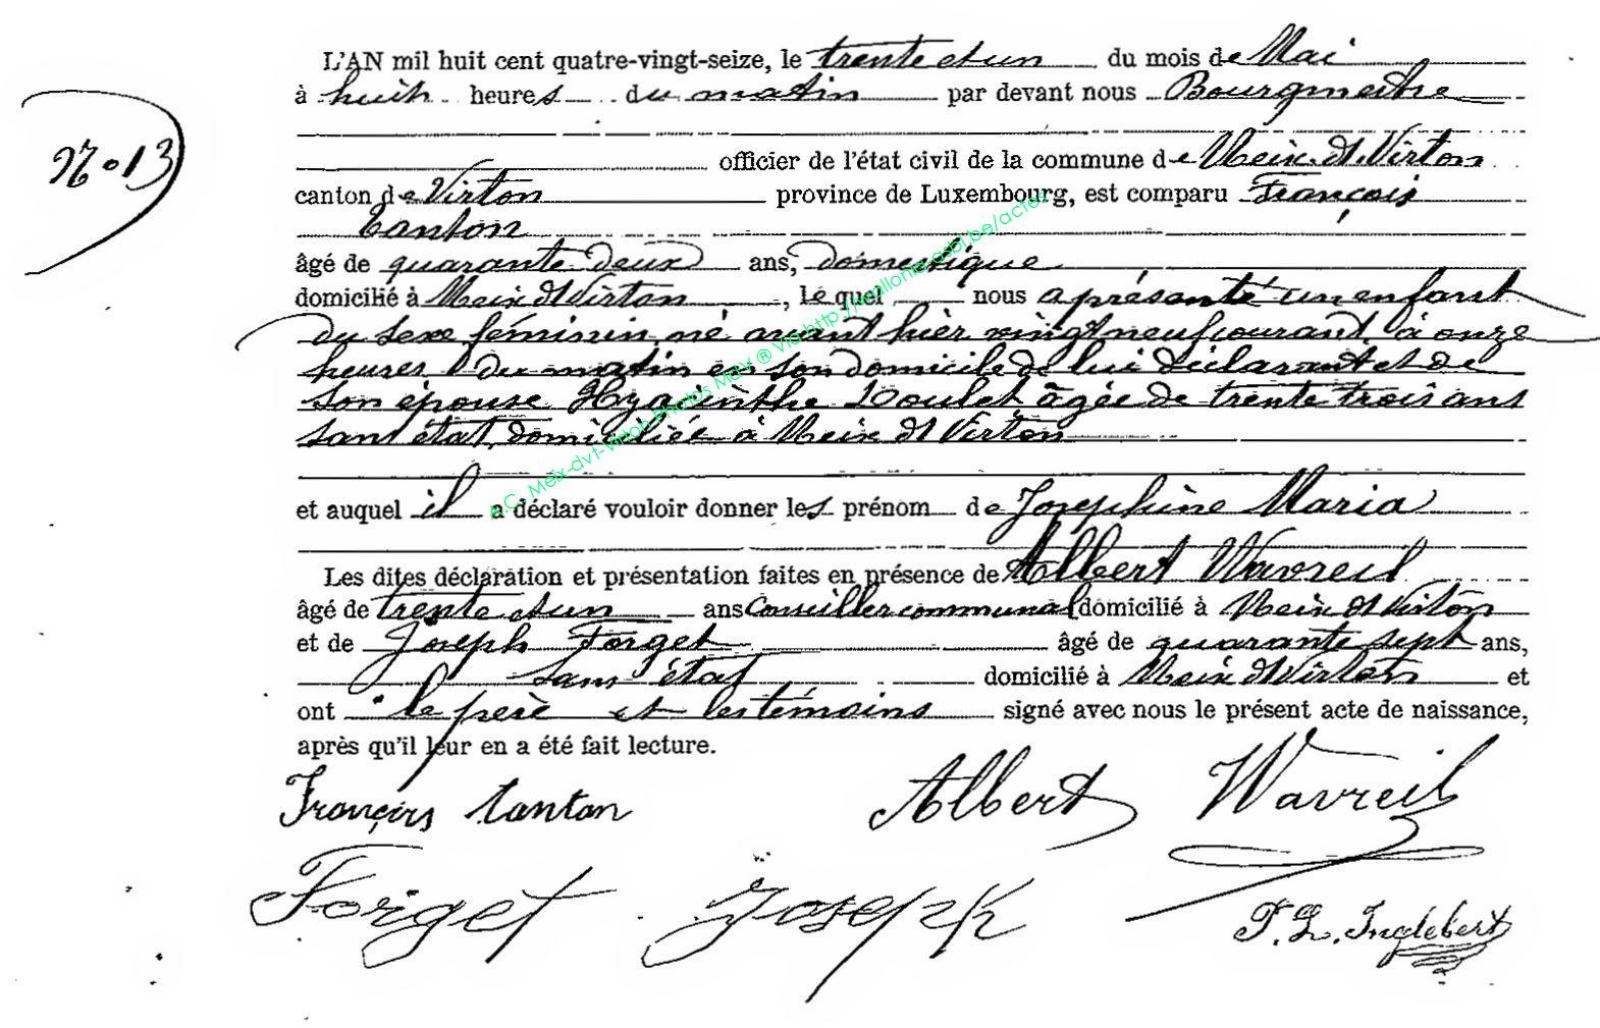 L'AN mil huit cent quatre-vingt-seize, le trente et un du mois de Mai
à huit heures du matin par devant nous Bourgmestre
N° 13
officier de l'état civil de la commune de Meix dt Virton
canton de Virton province de Luxembourg, est comparu François
Tanton
âgé de quarante deux ans, domestique
domicilié à Meix dt Virton, lequel nous a présenté un enfant
du sexe féminin né avant hier vingt neuf courant à onze
heures du matin en son domicile de lui déclarant et de
son épouse Hyacinthe Poulet âgée de trente trois ans
sans état, domiciliée à Meix dt Virton
et auquel il a déclaré vouloir donner les prénom de Joséphine Maria
Les dites déclaration et présentation faites en présence de Albert Wavreil
âgé de trente et un ans Conseiller communal domicilié à Meix dt Virton
et de Joseph Forget âgé de quarante sept ans,
sans état domicilié à Meix dt Virton et
ont le père et les témoins signé avec nous le présent acte de naissance,
après qu'il leur en a été fait lecture.
François Tanton Albert Wavreil
Forget Joseph
Inglebert